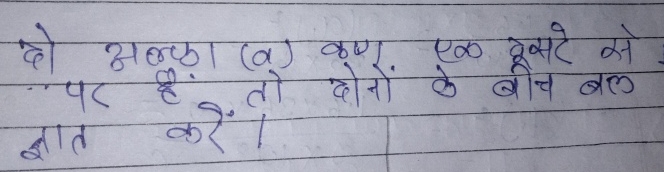 दो अल्फा (α) कण एक दूसरे से
.. पर हैं, तो दोनों के बीच बल
ज्ञात करें।